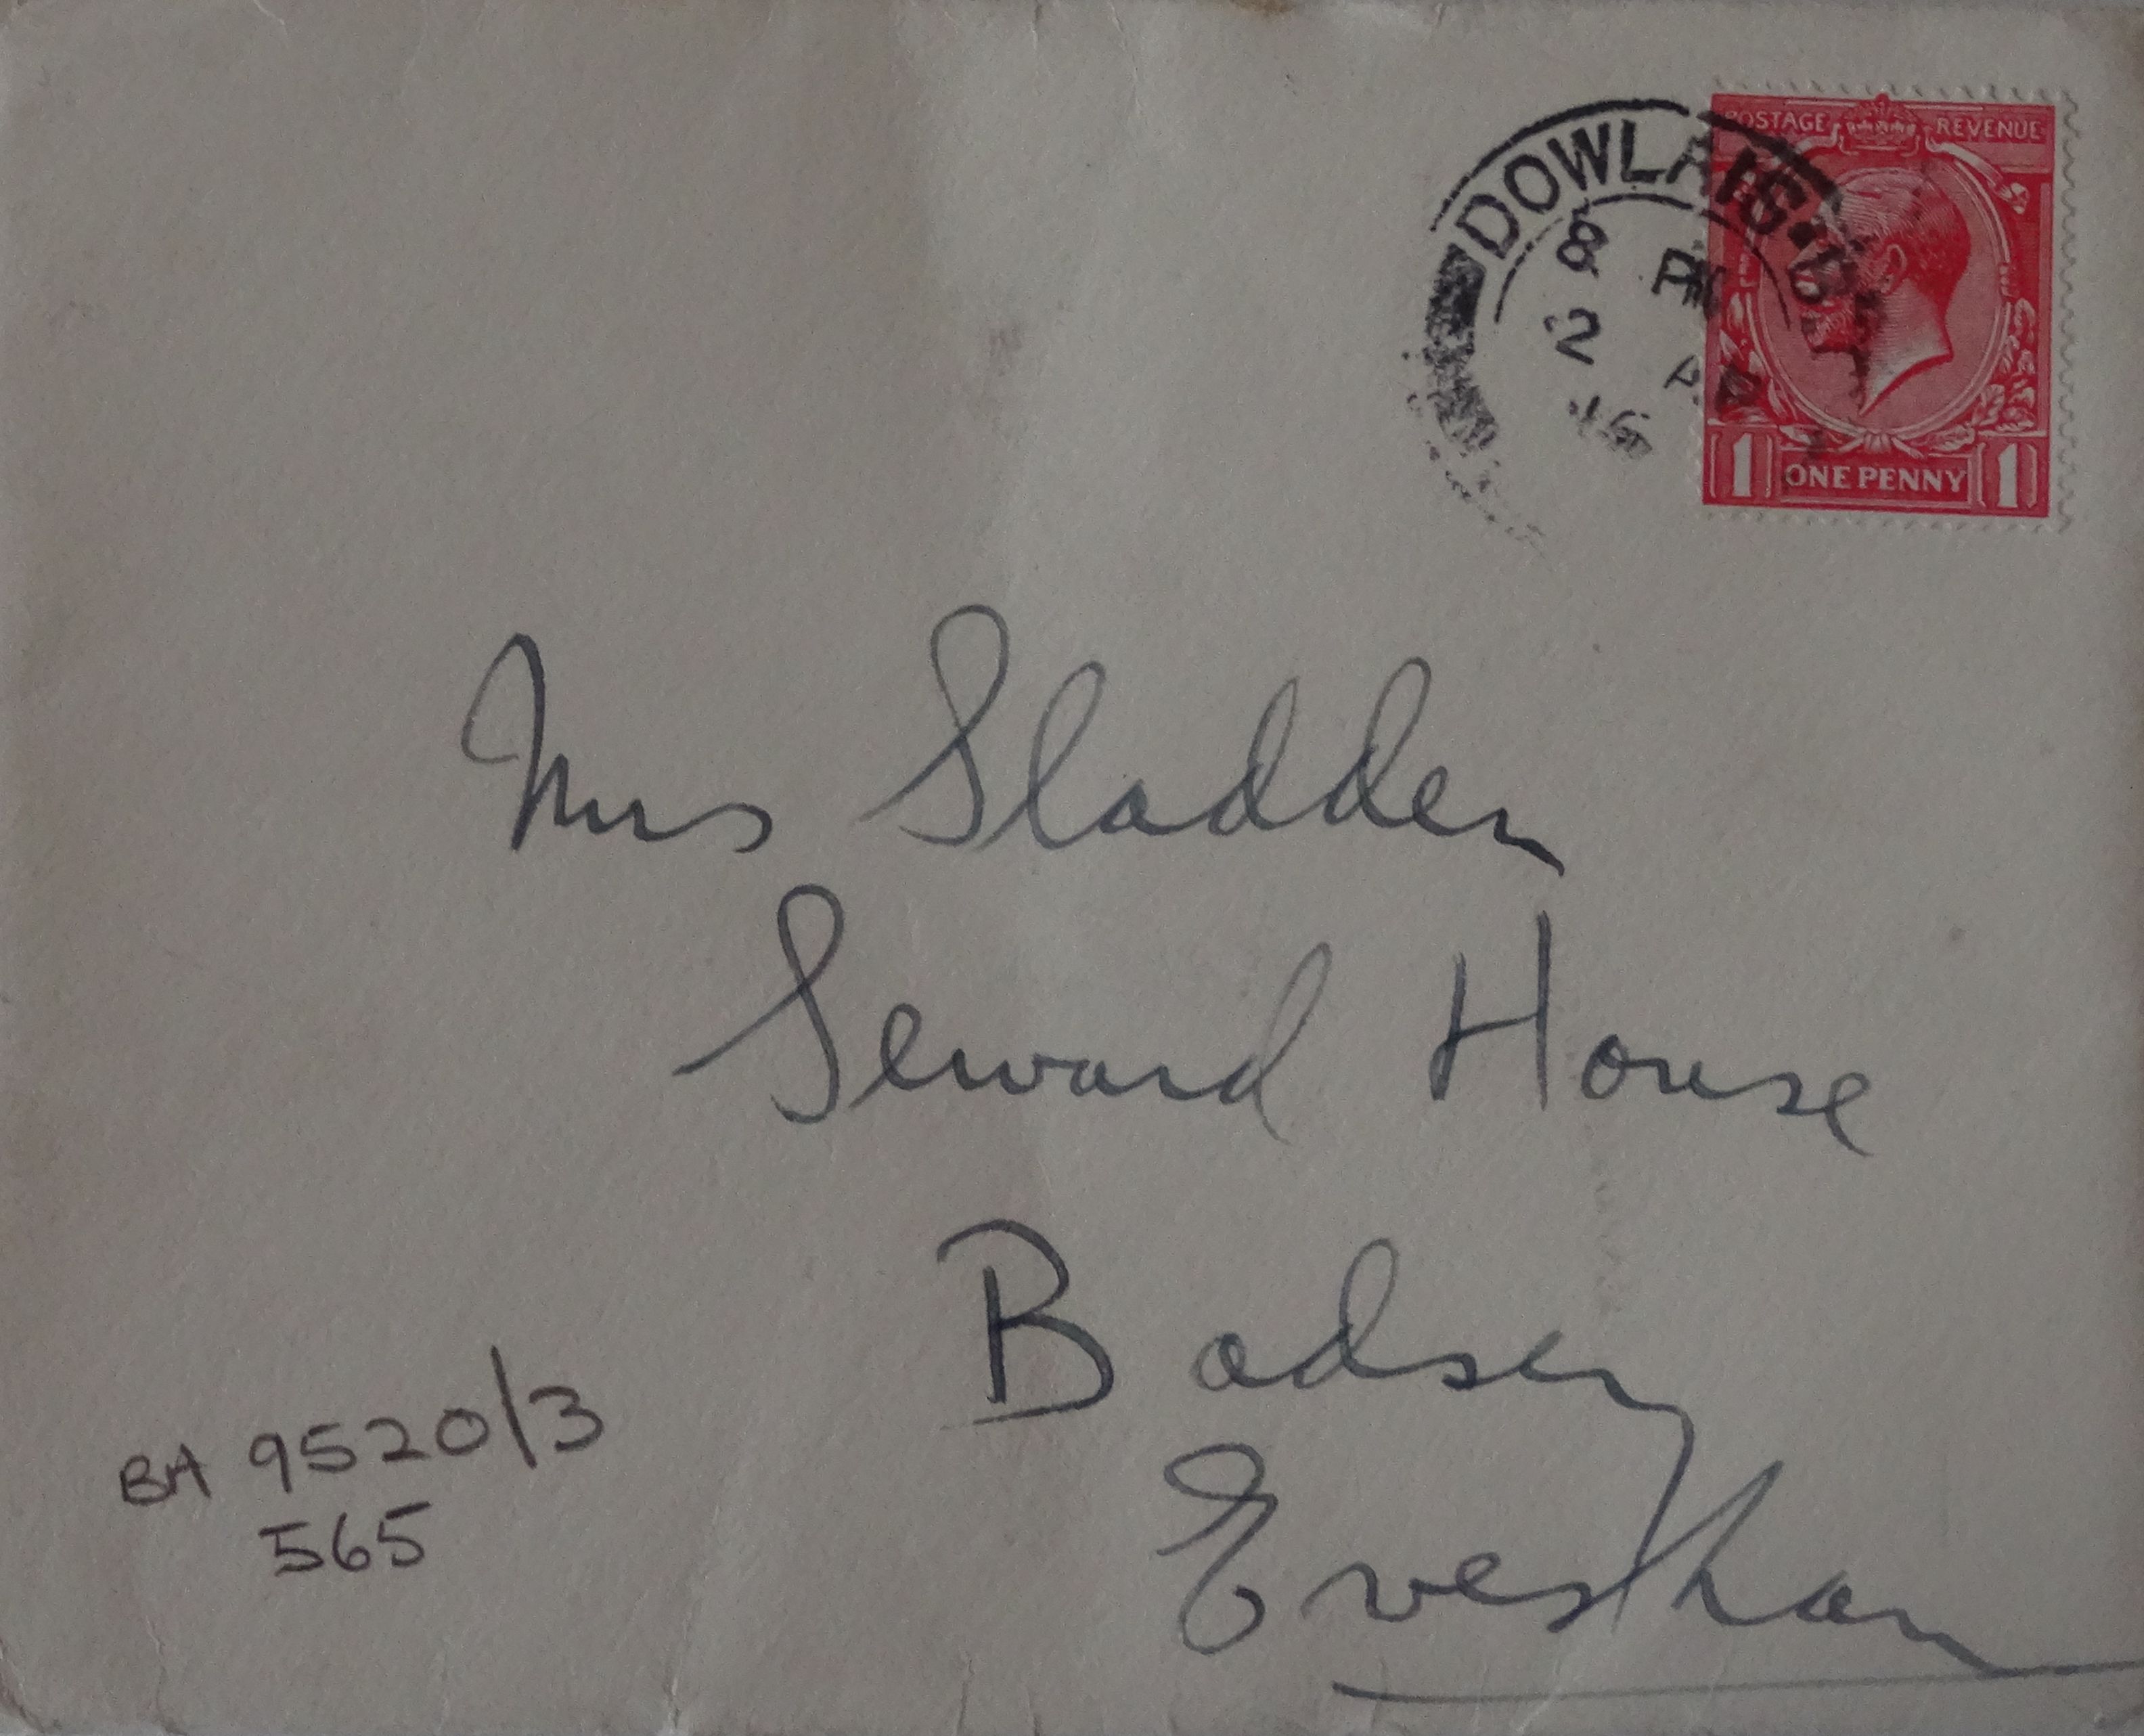 POSTAGE REVENUE
DOWLAIS
8 PM
2 AP
16
1 ONE PENNY 1
Mrs Sladden
Seward House
Badsey
Evesham
BA 9520/3
565